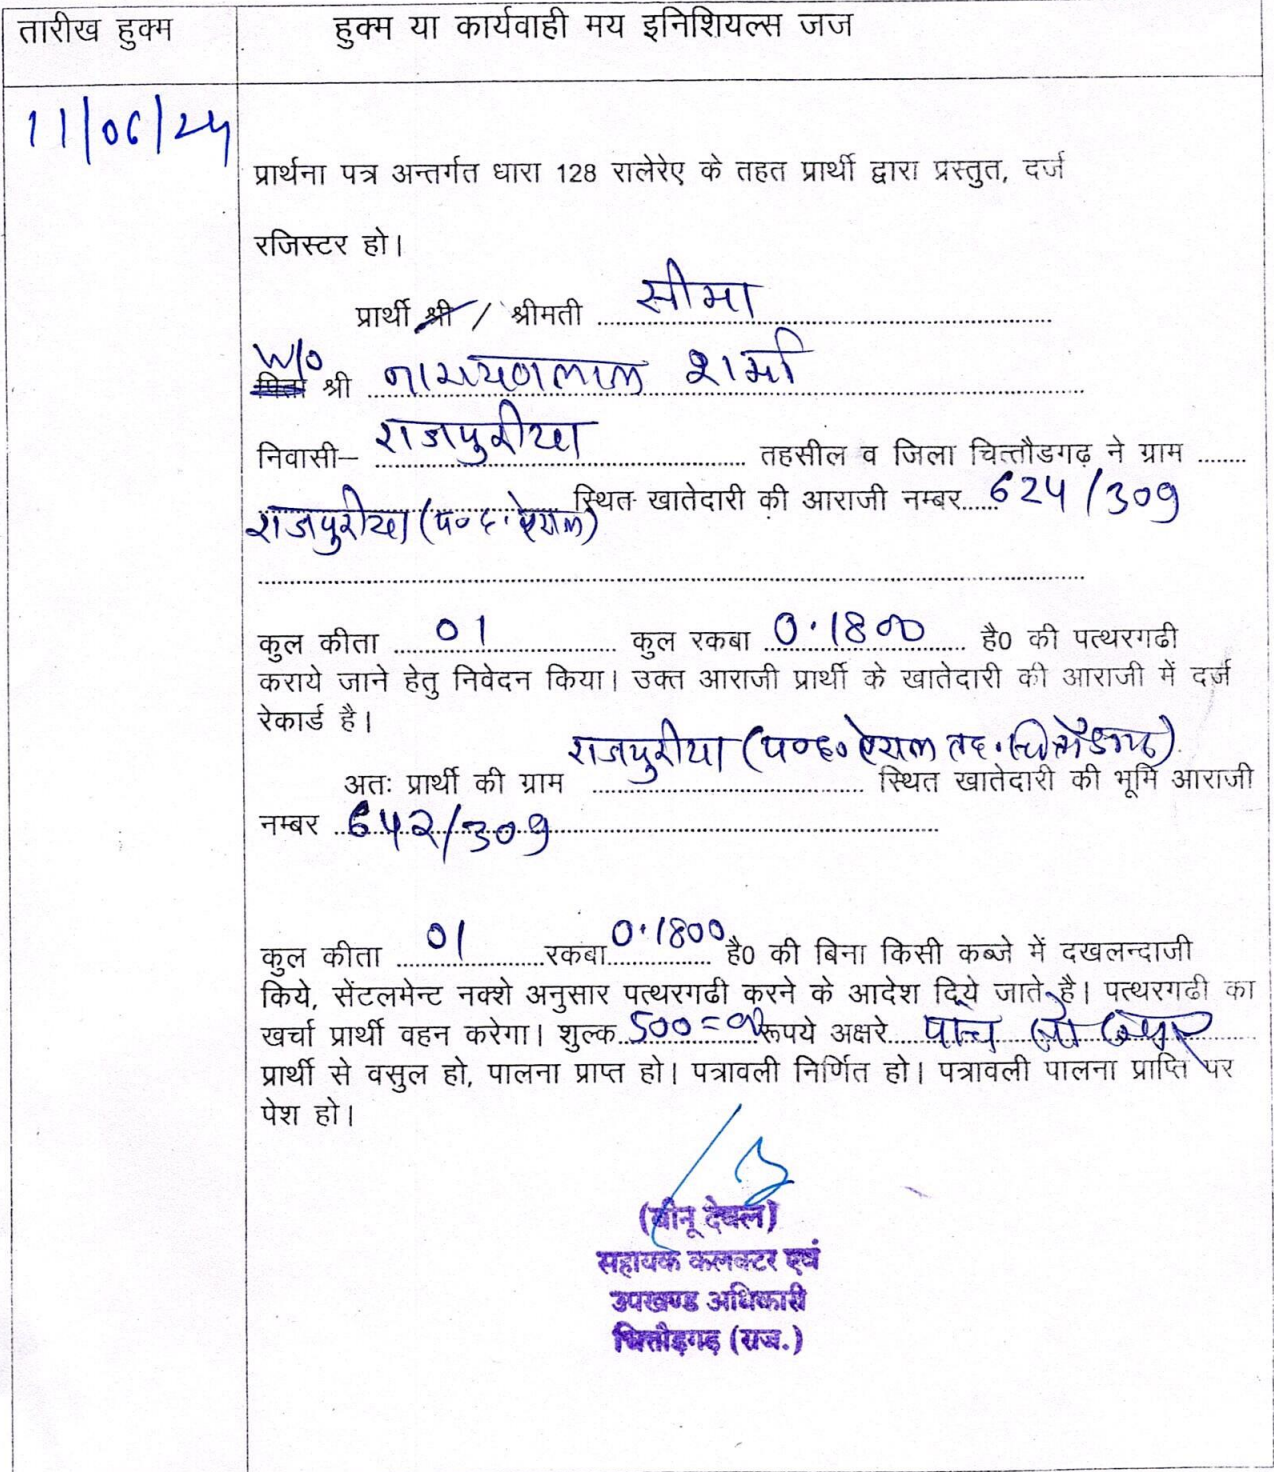 तारीख हुक्म
हुक्म या कार्यवाही मय इनिशियल्स जज
11/06/24
प्रार्थना पत्र अन्तर्गत धारा 128 रालेरेए के तहत प्रार्थी द्वारा प्रस्तुत, दर्ज
रजिस्टर हो।
प्रार्थी श्री / श्रीमती सीमा
W/o
पिता श्री नारायणलाल शर्मा
निवासी– राजपुरीया तहसील व जिला चित्तौडगढ़ ने ग्राम
राजपुरीया (प०ह. ऐराल) स्थित खातेदारी की आराजी नम्बर 624/309
कुल कीता 01 कुल रकबा 0.1800 है0 की पत्थरगढी
कराये जाने हेतु निवेदन किया। उक्त आराजी प्रार्थी के खातेदारी की आराजी में दर्ज
रेकार्ड है।
अतः प्रार्थी की ग्राम राजपुरीया (प०ह० ऐराल तह. चित्तौडगढ) स्थित खातेदारी की भूमि आराजी
नम्बर 642/309
कुल कीता 01 रकबा 0.1800 है0 की बिना किसी कब्जे में दखलन्दाजी
किये, सेंटलमेन्ट नक्शे अनुसार पत्थरगढी करने के आदेश दिये जाते है। पत्थरगढी का
खर्चा प्रार्थी वहन करेगा। शुल्क 500=00 रूपये अक्षरे पांच सौ
प्रार्थी से वसुल हो, पालना प्राप्त हो। पत्रावली निर्णित हो। पत्रावली पालना प्राप्ति पर
पेश हो।
(बीनू देवल)
सहायक कलक्टर एवं
उपखण्ड अधिकारी
चित्तौड़गढ़ (राज.)